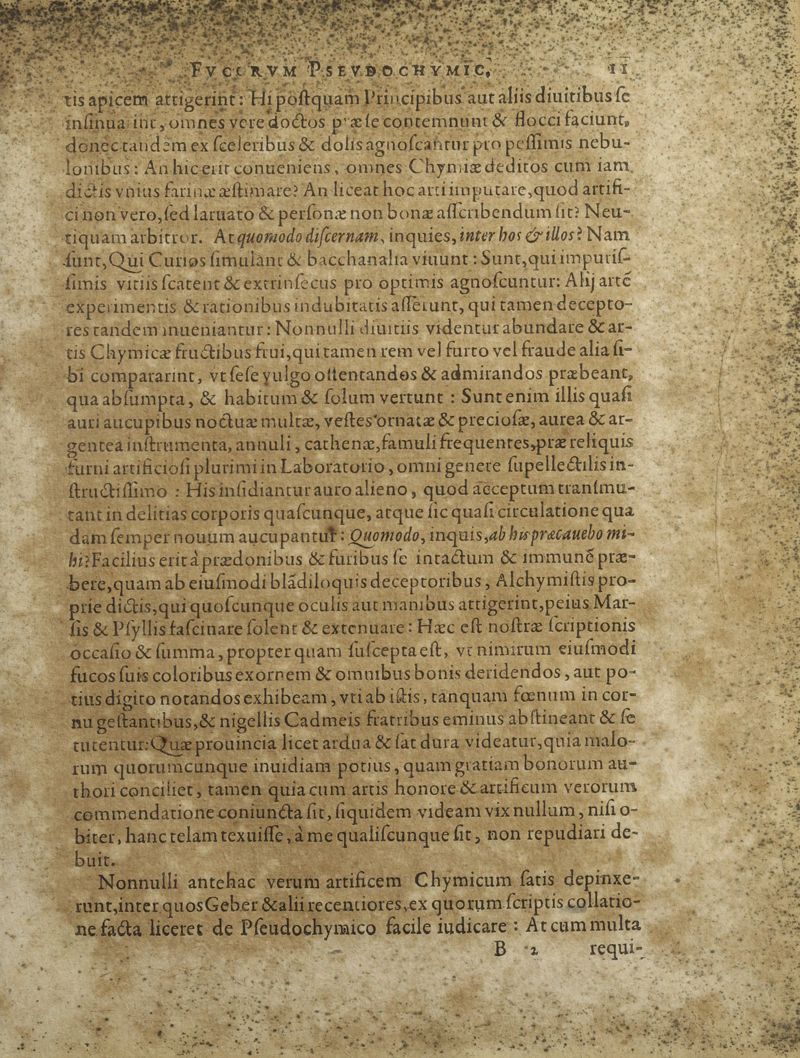 FVCORVM PSEVDOCHYMIC. 11
tis apicem attigerint: Hi poſtquam Principibus aut aliis diuitibus ſe
inſinuarint, omnes vere doctos præ ſe contemnunt & flocci faciunt,
donec tandem ex ſceleribus & dolis agnoſcantur pro peſſimis nebu-
lonibus: An hic erit conueniens, omnes Chymiæ deditos cum iam
dictis vnius farinæ æſtimare? An liceat hoc arti imputare, quod artifi-
ci non vero, ſed laruato & perſonæ non bonæ aſſcribendum ſit? Neu-
tiquam arbitror. At quomodo diſcernam, inquies, inter hos & illos? Nam
ſunt, Qui Curios ſimulant & bacchanalia viuunt: Sunt, qui impuriſ-
ſimis vitiis ſcatent & extrinſecus pro optimis agnoſcuntur: Alij artē
experimentis & rationibus indubitatis aſſerunt, qui tamen decepto-
res tandem inueniantur: Nonnulli diuitiis videntur abundare & ar-
tis Chymicæ fructibus frui, qui tamen rem vel furto vel fraude alia ſi-
bi compararint, vt ſeſe vulgo oſtentandos & admirandos præbeant,
qua abſumpta, & habitum & ſolum vertunt: Sunt enim illis quaſi
auri aucupibus noctuæ multæ, veſtes ornatæ & precioſæ, aurea & ar-
gentea inſtrumenta, annuli, cathenæ, famuli frequentes, præ reliquis
furni artificioſi plurimi in Laboratorio, omni genere ſupellectilis in-
ſtructiſſimo: His inſidiantur auro alieno, quod acceptum tranſmu-
tant in delitias corporis quaſcunque, atque ſic quaſi circulatione qua
dam ſemper nouum aucupantur: Quomodo, inquis, ab his præcauebo mi-
hi? Facilius erit à prædonibus & furibus ſe intactum & immunē præ-
bere, quam ab eiuſmodi blādiloquis deceptoribus, Alchymiſtis pro-
prie dictis, qui quoſcunque oculis aut manibus attigerint, peius Mar-
ſis & Pſyllis faſcinare ſolent & extenuare: Hæc eſt noſtræ ſcriptionis
occaſio & ſumma, propter quam ſuſcepta eſt, vt nimirum eiuſmodi
fucos ſuis coloribus exornem & omnibus bonis deridendos, aut po-
tius digito notandos exhibeam, vti ab iſtis, tanquam fœnum in cor-
nu geſtantibus, & nigellis Cadmeis fratribus eminus abſtineant & ſe
tutentur: Quæ prouincia licet ardua & ſat dura videatur, quia malo-
rum quorumcunque inuidiam potius, quam gratiam bonorum au-
thori conciliet, tamen quia cum artis honore & artificum verorum
commendatione coniuncta ſit, ſiquidem videam vix nullum, niſi o-
biter, hanc telam texuiſſe, à me qualiſcunque ſit, non repudiari de-
buit.
Nonnulli antehac verum artificem Chymicum ſatis depinxe-
runt, inter quos Geber & alii recentiores, ex quorum ſcriptis collatio-
ne facta liceret de Pſeudochymico facile iudicare: At cum multa
B 2 requi-